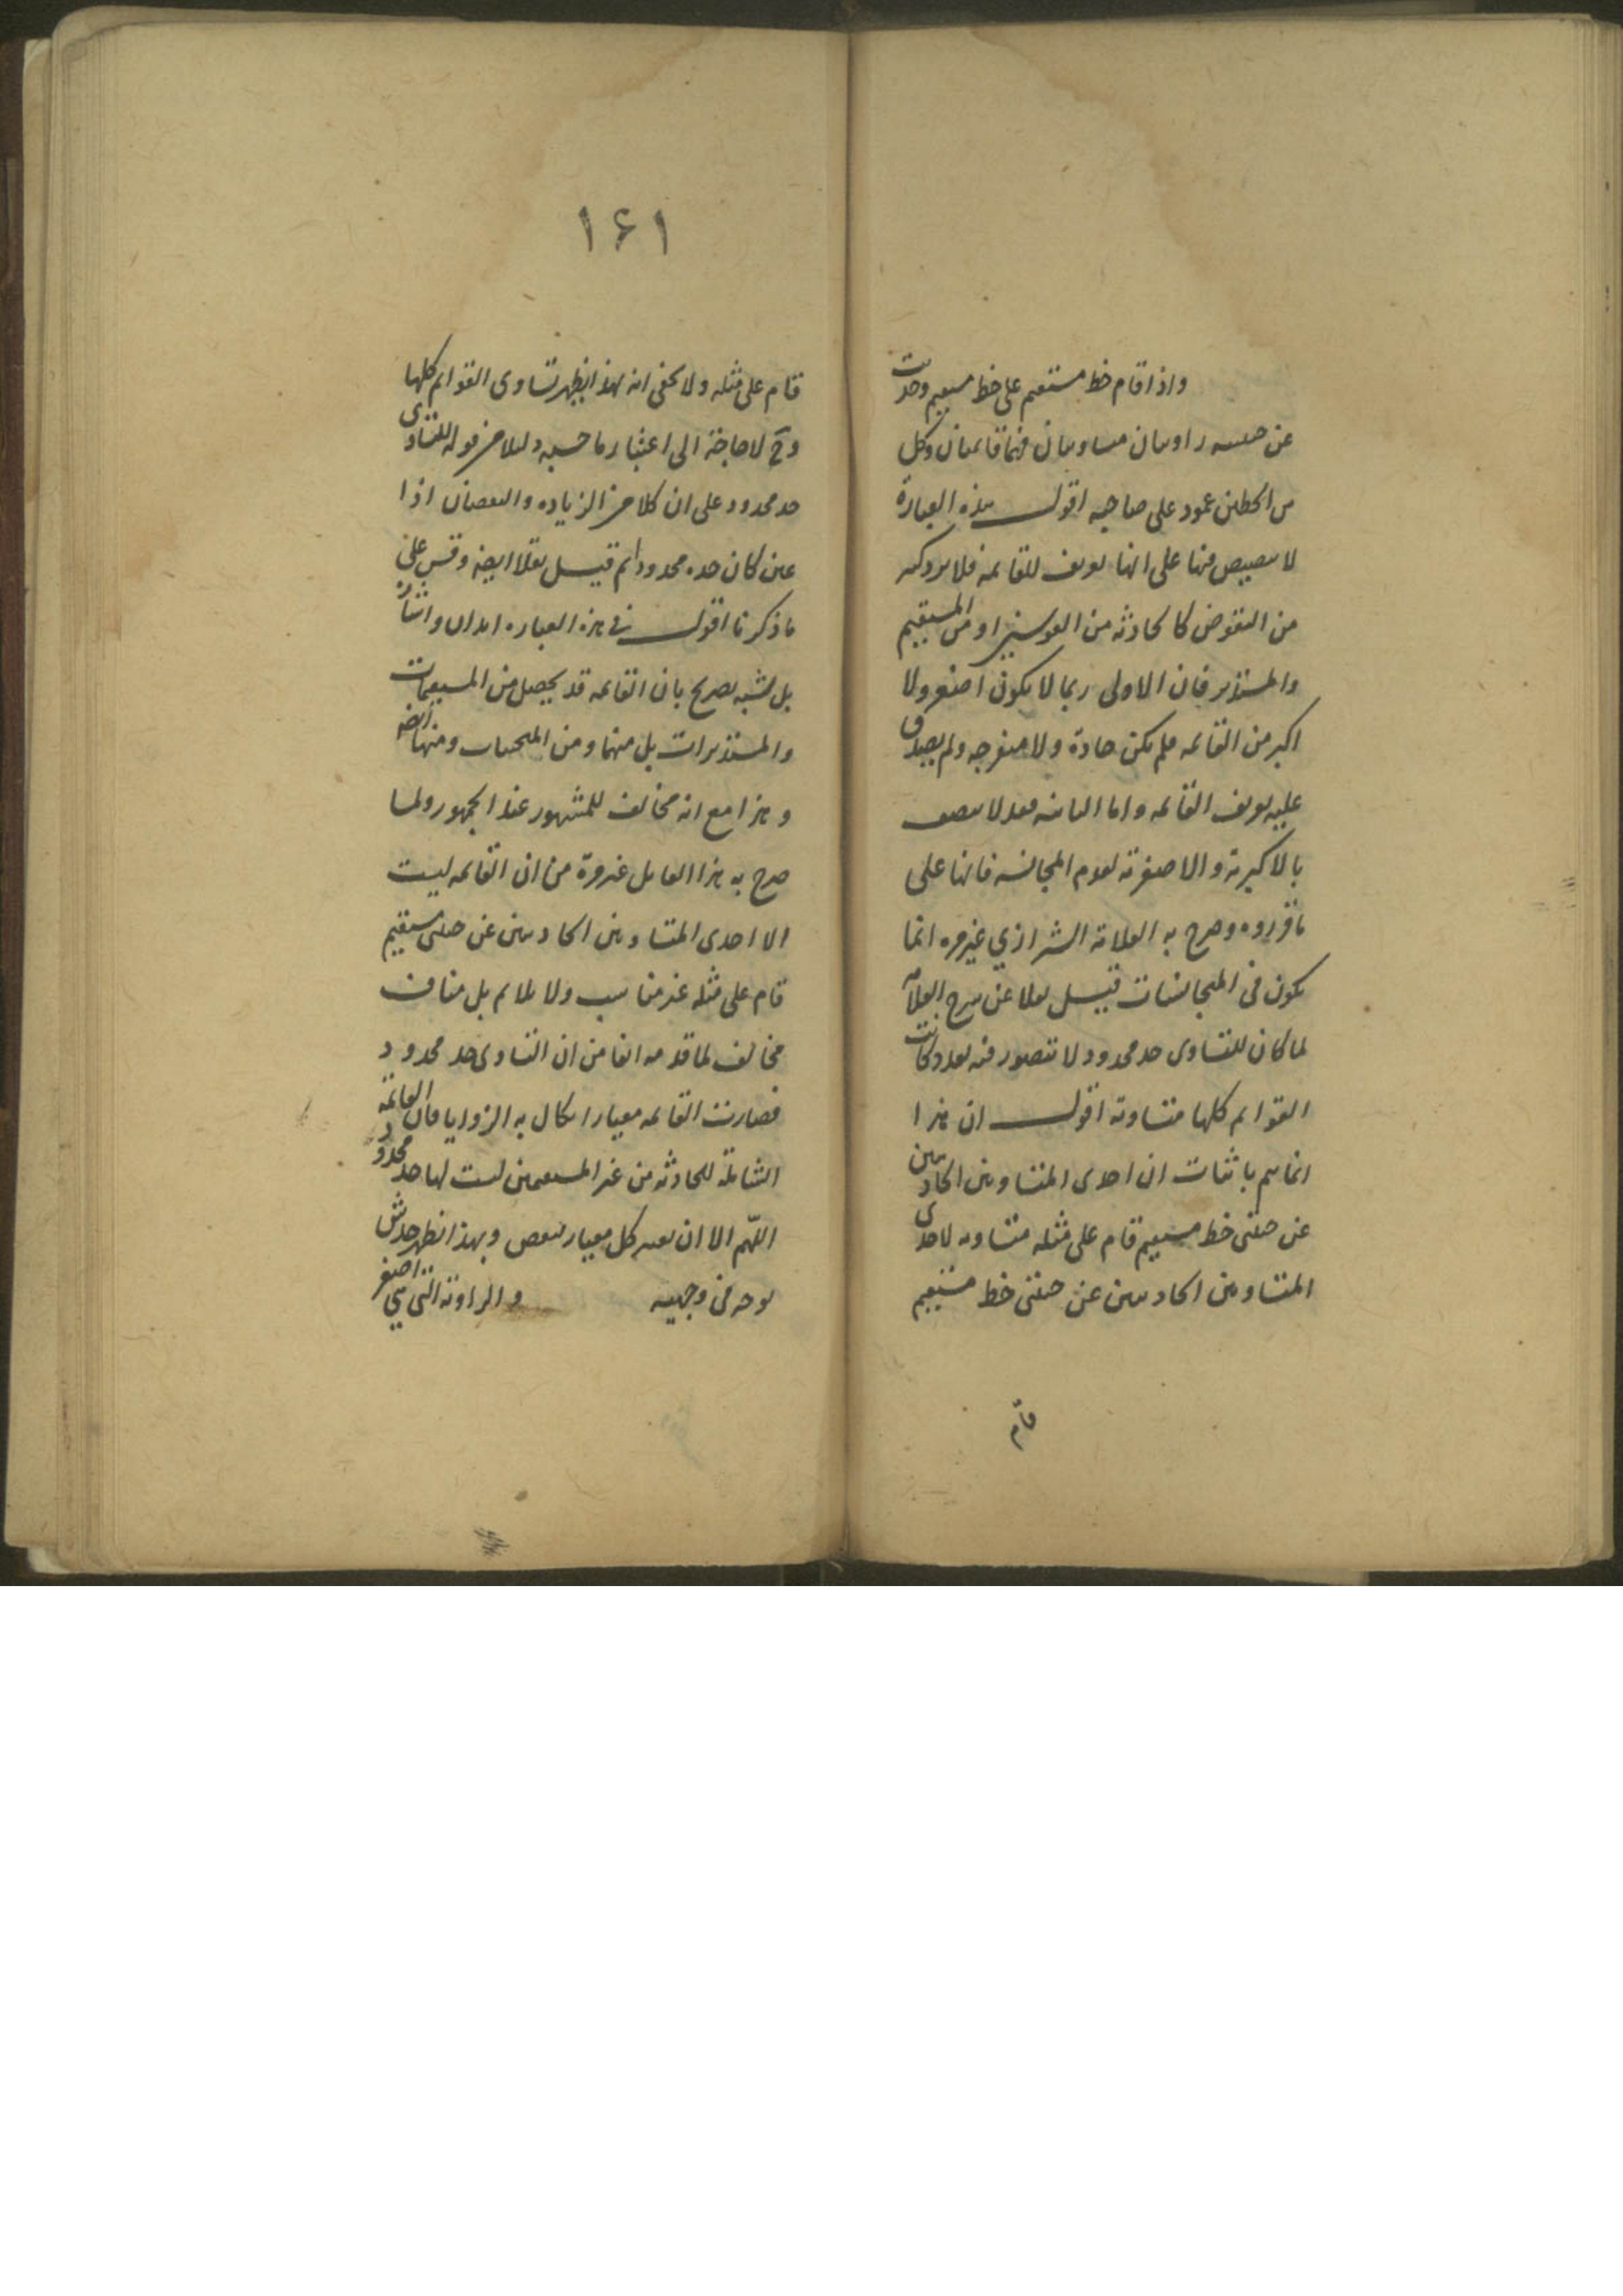 واذا قام خط مستقيم على خط مستقيم وحدثت
عن جنبيه زاويتان متساويتان فهما قائمتان وكل
من الخطين عمود على صاحبه اقول هذه العبارة
لا تنصيص فيها على انها تعريف للقائمة فلا يرد كثير
من النقوض كالحادثة من القوسين او من المستقيم
والمستدير فان الاولى ربما لا يكون اصغر ولا
اكبر من القائمة فلم تكن حادة ولا منفرجة ولم يصدق
عليه تعريف القائمة واما الثانية فقد لا يتصف
بالاكبرية والاصغرية لعدم المجانسة فانها على
ما قرروه وصرح به العلامة الشيرازي غير مرة انما
يكون في المتجانسات قيل نقلا عن شرح العلامة
لما كان للتساوى حد محدود لا يتصور فيه تعدد كانت
القوائم كلها متساوية اقول ان هذا
انما يتم باثبات ان احدى المتساويتين الحادثتين
عن جنبتي خط مستقيم قام على مثله متساوية لاحدى
المتساويتين الحادثتين عن جنبتي خط مستقيم
قام
١۶١
قام على مثله ولا يخفى انه بهذا يظهر تساوى القوائم كلها
وح لا حاجة الى اعتبار ما حسبه دليلا من قوله للتساوى
حد محدود على ان كلا من الزيادة والنقصان اذا
عين كان حده محدودا ثم قيل نقلا ايضه وقس على
ما ذكرنا اقول في هذه العبارة ايذان واشارة
بل شبه تصريح بان القائمة قد يحصل من المستقيمات
والمستديرات بل منهما ومن المنحنيات ومنها ايضه
وهذا مع انه مخالف للمشهور عند الجمهور ولما
صرح به هذا القايل غير مرة من ان القائمة ليست
الا احدى المتساويتين الحادثتين عن جنبتي مستقيم
قام على مثله غير مناسب ولا ملائم بل مناف
مخالف لما قدمه انفا من ان التساوى حد محدود
فصارت القائمة معيارا يكال به الزوايا فان القائمة
الشاملة للحادثة من غير المستقيمين ليست لها حد محدود
اللهم الا ان يعتبر كل معيار لبعض وبهذا انظهر خدش
توجه في وجهيه والزاوية التي هي اصغر